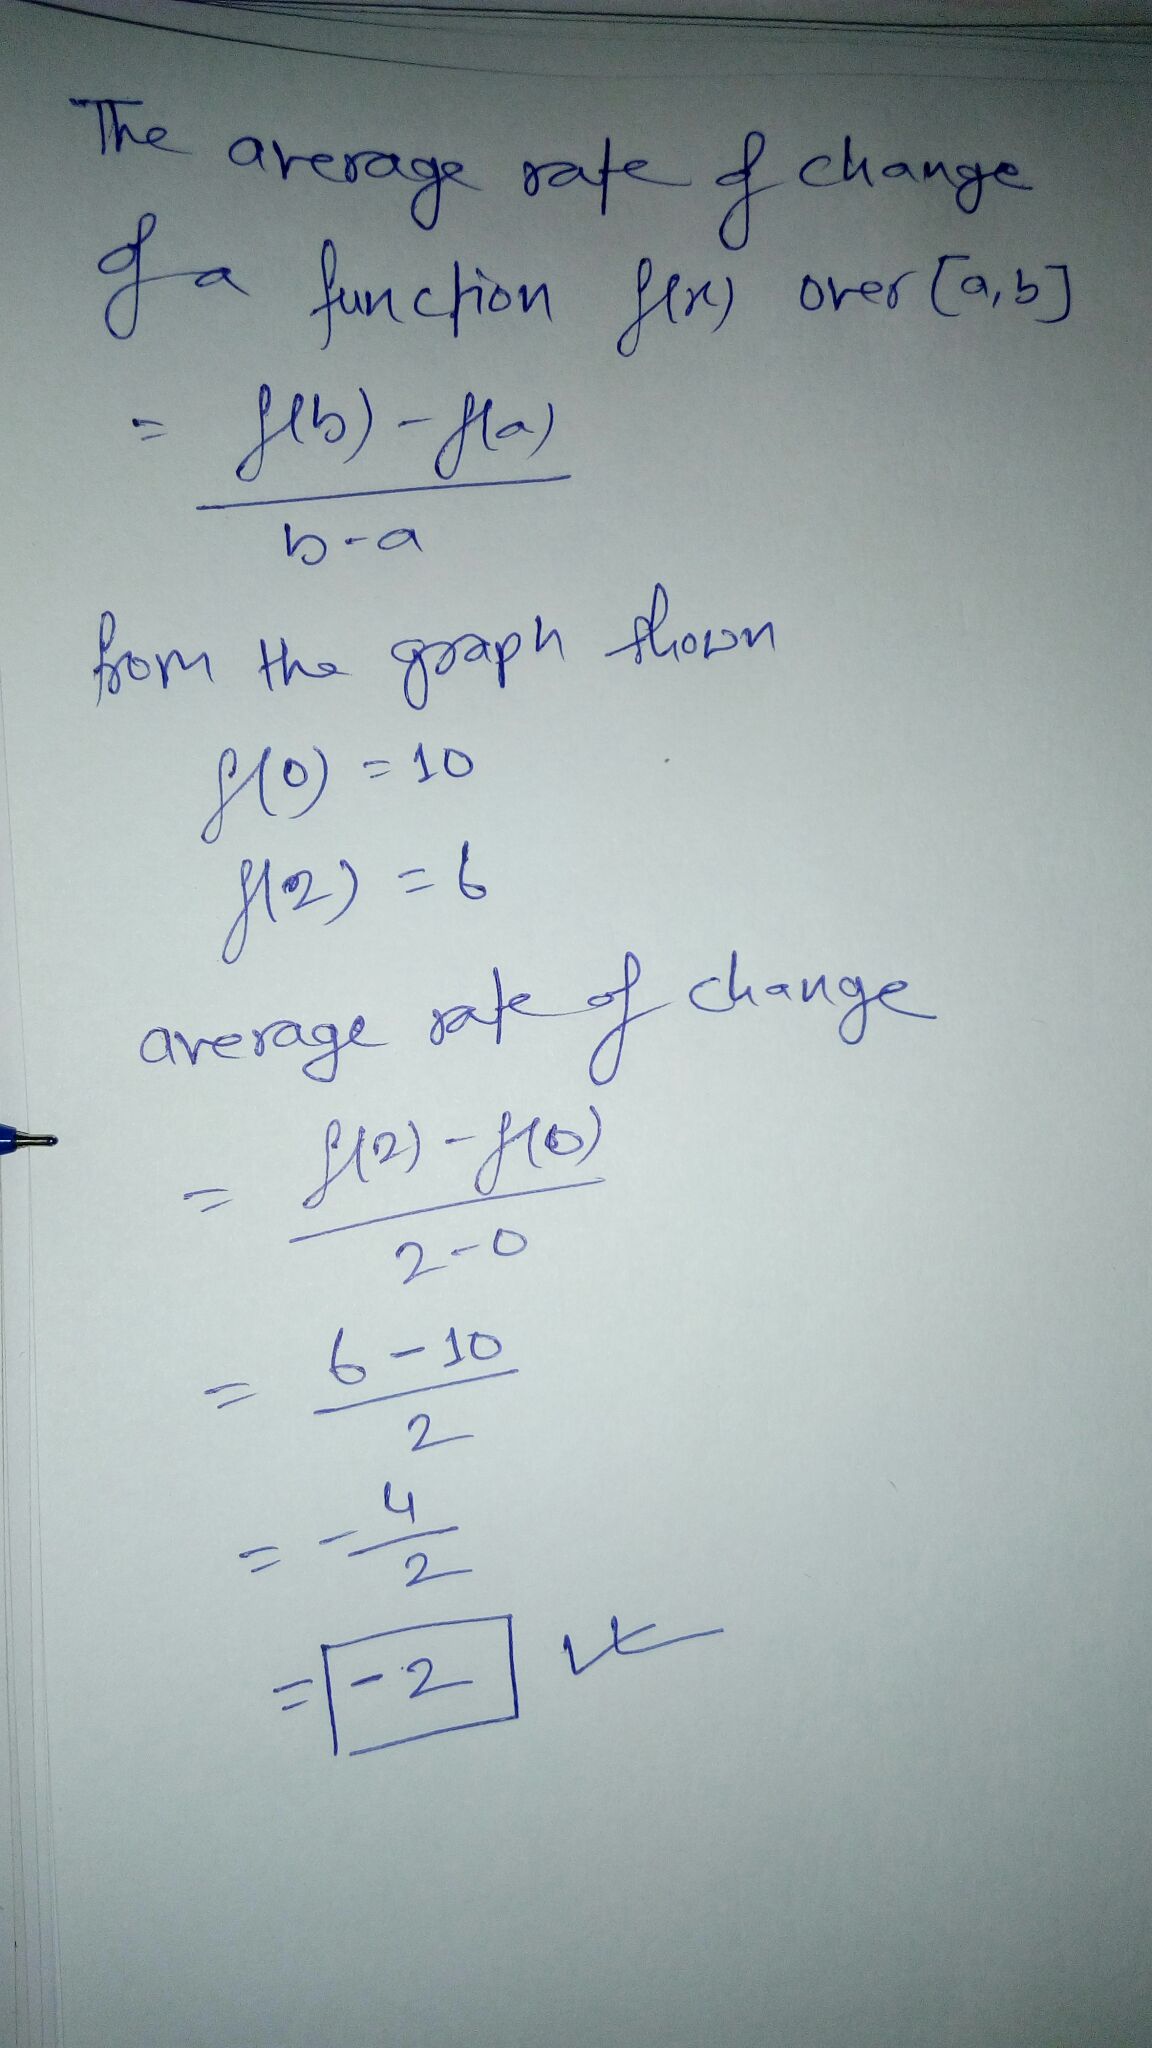 The average rate of change
of a function f(x) over [a,b]
= f(b) - f(a)
b-a
from the graph shown
f(0) = 10
f(2) = 6
average rate of change
= f(2) - f(0)
2-0
= 6 - 10
2
= - 4
2
= -2